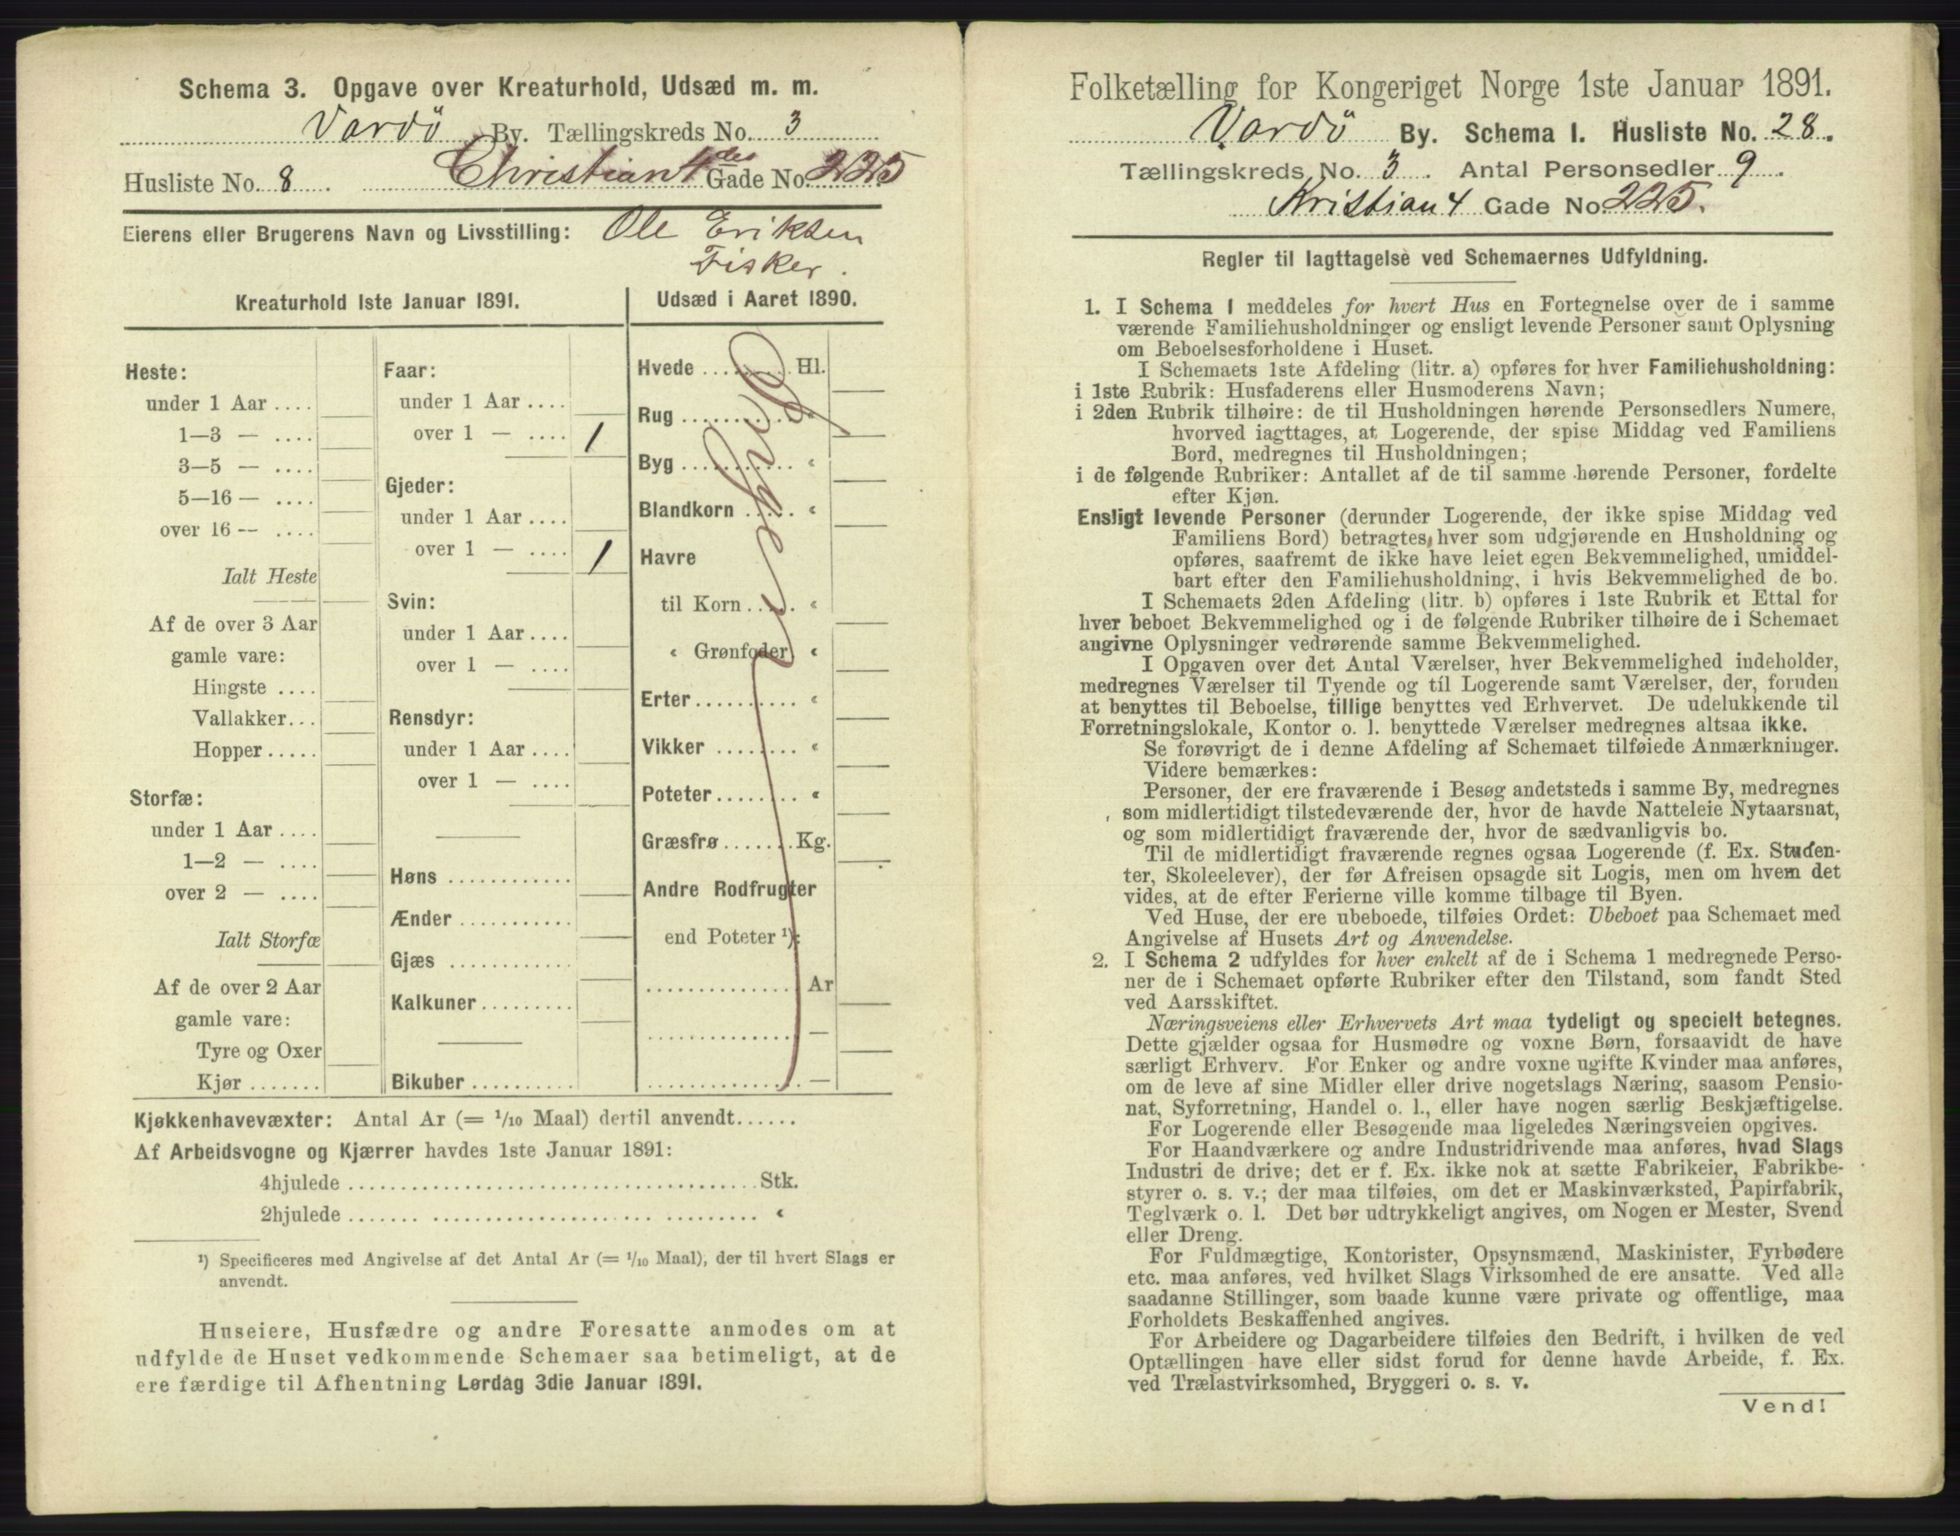 Schema 3. Opgave over Kreaturhold, Udsæd m. m.
Vardö By. Tællingskreds No. 3
Husliste No. 8 Christian 4des Gade No. 225
Eierens eller Brugerens Navn og Livsstilling: Ole Eriksen
Fisker.
Kreaturhold 1ste Januar 1891.
Heste:
under 1 Aar ....
1—3 — ....
3—5 — ....
5—16 — ....
over 16 -- ....
Ialt Heste
Af de over 3 Aar
gamle vare:
Hingste ....
Vallakker...
Hopper .....
Storfæ:
under 1 Aar ....
1—2 — ....
over 2 — ....
Ialt Storfæ
Af de over 2 Aar
gamle vare:
Tyre og Oxer
Kjør .......
Faar:
under 1 Aar ....
over 1 — .... 1
Gjeder:
under 1 Aar ....
over 1 — .... 1
Svin:
under 1 Aar ....
over 1 — ....
Rensdyr:
under 1 Aar ....
over 1 — ....
Høns ............
Ænder ...........
Gjæs ............
Kalkuner .........
Bikuber ..........
Udsæd i Aaret 1890.
Hvede .......... Hl.
Rug ............ "
Byg ............ "
Blandkorn ...... "
Havre
til Korn ..... "
" Grønfoder "
Erter ........... "
Vikker .......... "
Poteter ......... "
Græsfrø ....... Kg.
Andre Rodfrugter
end Poteter ¹):
................ Ar
................ —
................ —
Kjøkkenhavevæxter: Antal Ar (= 1/10 Maal) dertil anvendt......
Af Arbeidsvogne og Kjærrer havdes 1ste Januar 1891:
4hjulede ........................................ Stk.
2hjulede ........................................ "
¹) Specificeres med Angivelse af det Antal Ar (= 1/10 Maal), der til hvert Slags er
anvendt.
Huseiere, Husfædre og andre Foresatte anmodes om at
udfylde de Huset vedkommende Schemaer saa betimeligt, at de
ere færdige til Afhentning Lørdag 3die Januar 1891.
Folketælling for Kongeriget Norge 1ste Januar 1891.
Vardö By. Schema 1. Husliste No. 28.
Tællingskreds No. 3. Antal Personsedler 9.
Kristian 4 Gade No. 225.
Regler til Iagttagelse ved Schemaernes Udfyldning.
1. I Schema 1 meddeles for hvert Hus en Fortegnelse over de i samme
værende Familiehusholdninger og ensligt levende Personer samt Oplysning
om Beboelsesforholdene i Huset.
I Schemaets 1ste Afdeling (litr. a) opføres for hver Familiehusholdning:
i 1ste Rubrik: Husfaderens eller Husmoderens Navn;
i 2den Rubrik tilhøire: de til Husholdningen hørende Personsedlers Numere,
hvorved iagttages, at Logerende, der spise Middag ved Familiens
Bord, medregnes til Husholdningen;
i de følgende Rubriker: Antallet af de til samme hørende Personer, fordelte
efter Kjøn.
Ensligt levende Personer (derunder Logerende, der ikke spise Middag ved
Familiens Bord) betragtes hver som udgjørende en Husholdning og
opføres, saafremt de ikke have leiet egen Bekvemmelighed, umiddel-
bart efter den Familiehusholdning, i hvis Bekvemmelighed de bo.
I Schemaets 2den Afdeling (litr. b) opføres i 1ste Rubrik et Ettal for
hver beboet Bekvemmelighed og i de følgende Rubriker tilhøire de i Schemaet
angivne Oplysninger vedrørende samme Bekvemmelighed.
I Opgaven over det Antal Værelser, hver Bekvemmelighed indeholder,
medregnes Værelser til Tyende og til Logerende samt Værelser, der, foruden
at benyttes til Beboelse, tillige benyttes ved Erhvervet. De udelukkende til
Forretningslokale, Kontor o. l. benyttede Værelser medregnes altsaa ikke.
Se forøvrigt de i denne Afdeling af Schemaet tilføiede Anmærkninger.
Videre bemærkes:
Personer, der ere fraværende i Besøg andetsteds i samme By, medregnes
som midlertidigt tilstedeværende der, hvor de havde Natteleie Nytaarsnat,
og som midlertidigt fraværende der, hvor de sædvanligvis bo.
Til de midlertidigt fraværende regnes ogsaa Logerende (f. Ex. Studen-
ter, Skoleelever), der før Afreisen opsagde sit Logis, men om hvem det
vides, at de efter Ferierne ville komme tilbage til Byen.
Ved Huse, der ere ubeboede, tilføies Ordet: Ubeboet paa Schemaet med
Angivelse af Husets Art og Anvendelse.
2. I Schema 2 udfyldes for hver enkelt af de i Schema 1 medregnede Perso-
ner de i Schemaet opførte Rubriker efter den Tilstand, som fandt Sted
ved Aarsskiftet.
Næringsveiens eller Erhvervets Art maa tydeligt og specielt betegnes.
Dette gjælder ogsaa for Husmødre og voxne Børn, forsaavidt de have
særligt Erhverv. For Enker og andre voxne ugifte Kvinder maa anføres,
om de leve af sine Midler eller drive nogetslags Næring, saasom Pensio-
nat, Syforretning, Handel o. l., eller have nogen særlig Beskjæftigelse.
For Logerende eller Besøgende maa ligeledes Næringsveien opgives.
For Haandværkere og andre Industridrivende maa anføres, hvad Slags
Industri de drive; det er f. Ex. ikke nok at sætte Fabrikeier, Fabrikbe-
styrer o. s. v.; der maa tilføies, om det er Maskinværksted, Papirfabrik,
Teglværk o. l. Det bør udtrykkeligt angives, om Nogen er Mester, Svend
eller Dreng.
For Fuldmægtige, Kontorister, Opsynsmænd, Maskinister, Fyrbødere
etc. maa anføres, ved hvilket Slags Virksomhed de ere ansatte. Ved alle
saadanne Stillinger, som baade kunne være private og offentlige, maa
Forholdets Beskaffenhed angives.
For Arbeidere og Dagarbeidere tilføies den Bedrift, i hvilken de ved
Optællingen have eller sidst forud for denne havde Arbeide, f. Ex.
ved Trælastvirksomhed, Bryggeri o. s. v.
Vend!